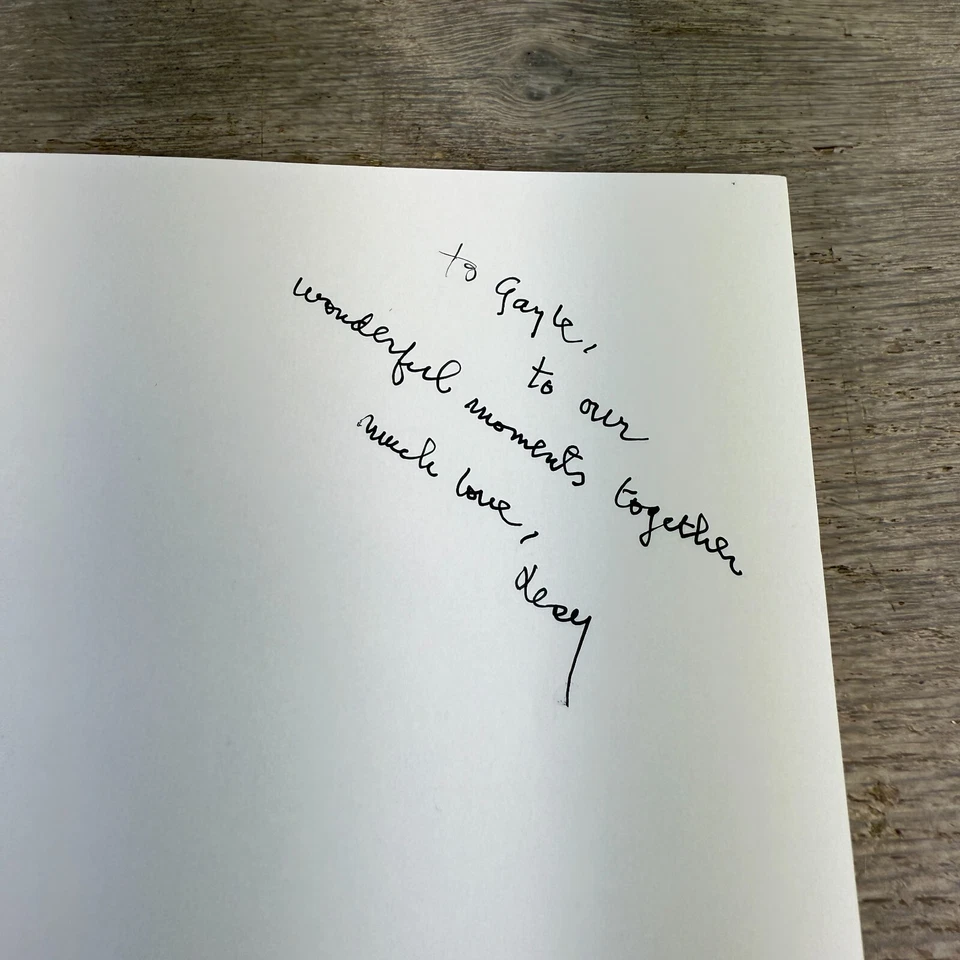 to Gayle,
to our
wonderful moments together
much love,